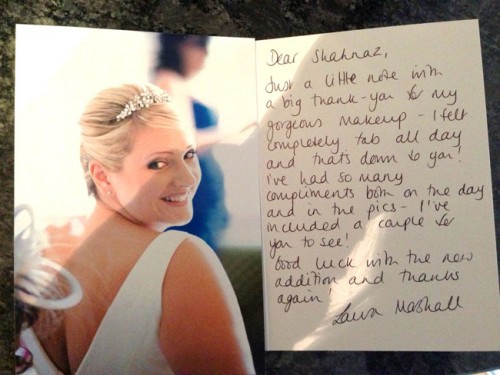 Dear Shahnaz,
Just a little note with
a big thank-you for my
gorgeous makeup - I felt
completely fab all day
and that's down to you!
I've had so many
compliments both on the day
and in the pics - I've
included a couple for
you to see!
Good luck with the new
addition and thanks
again!
Laura Marshall